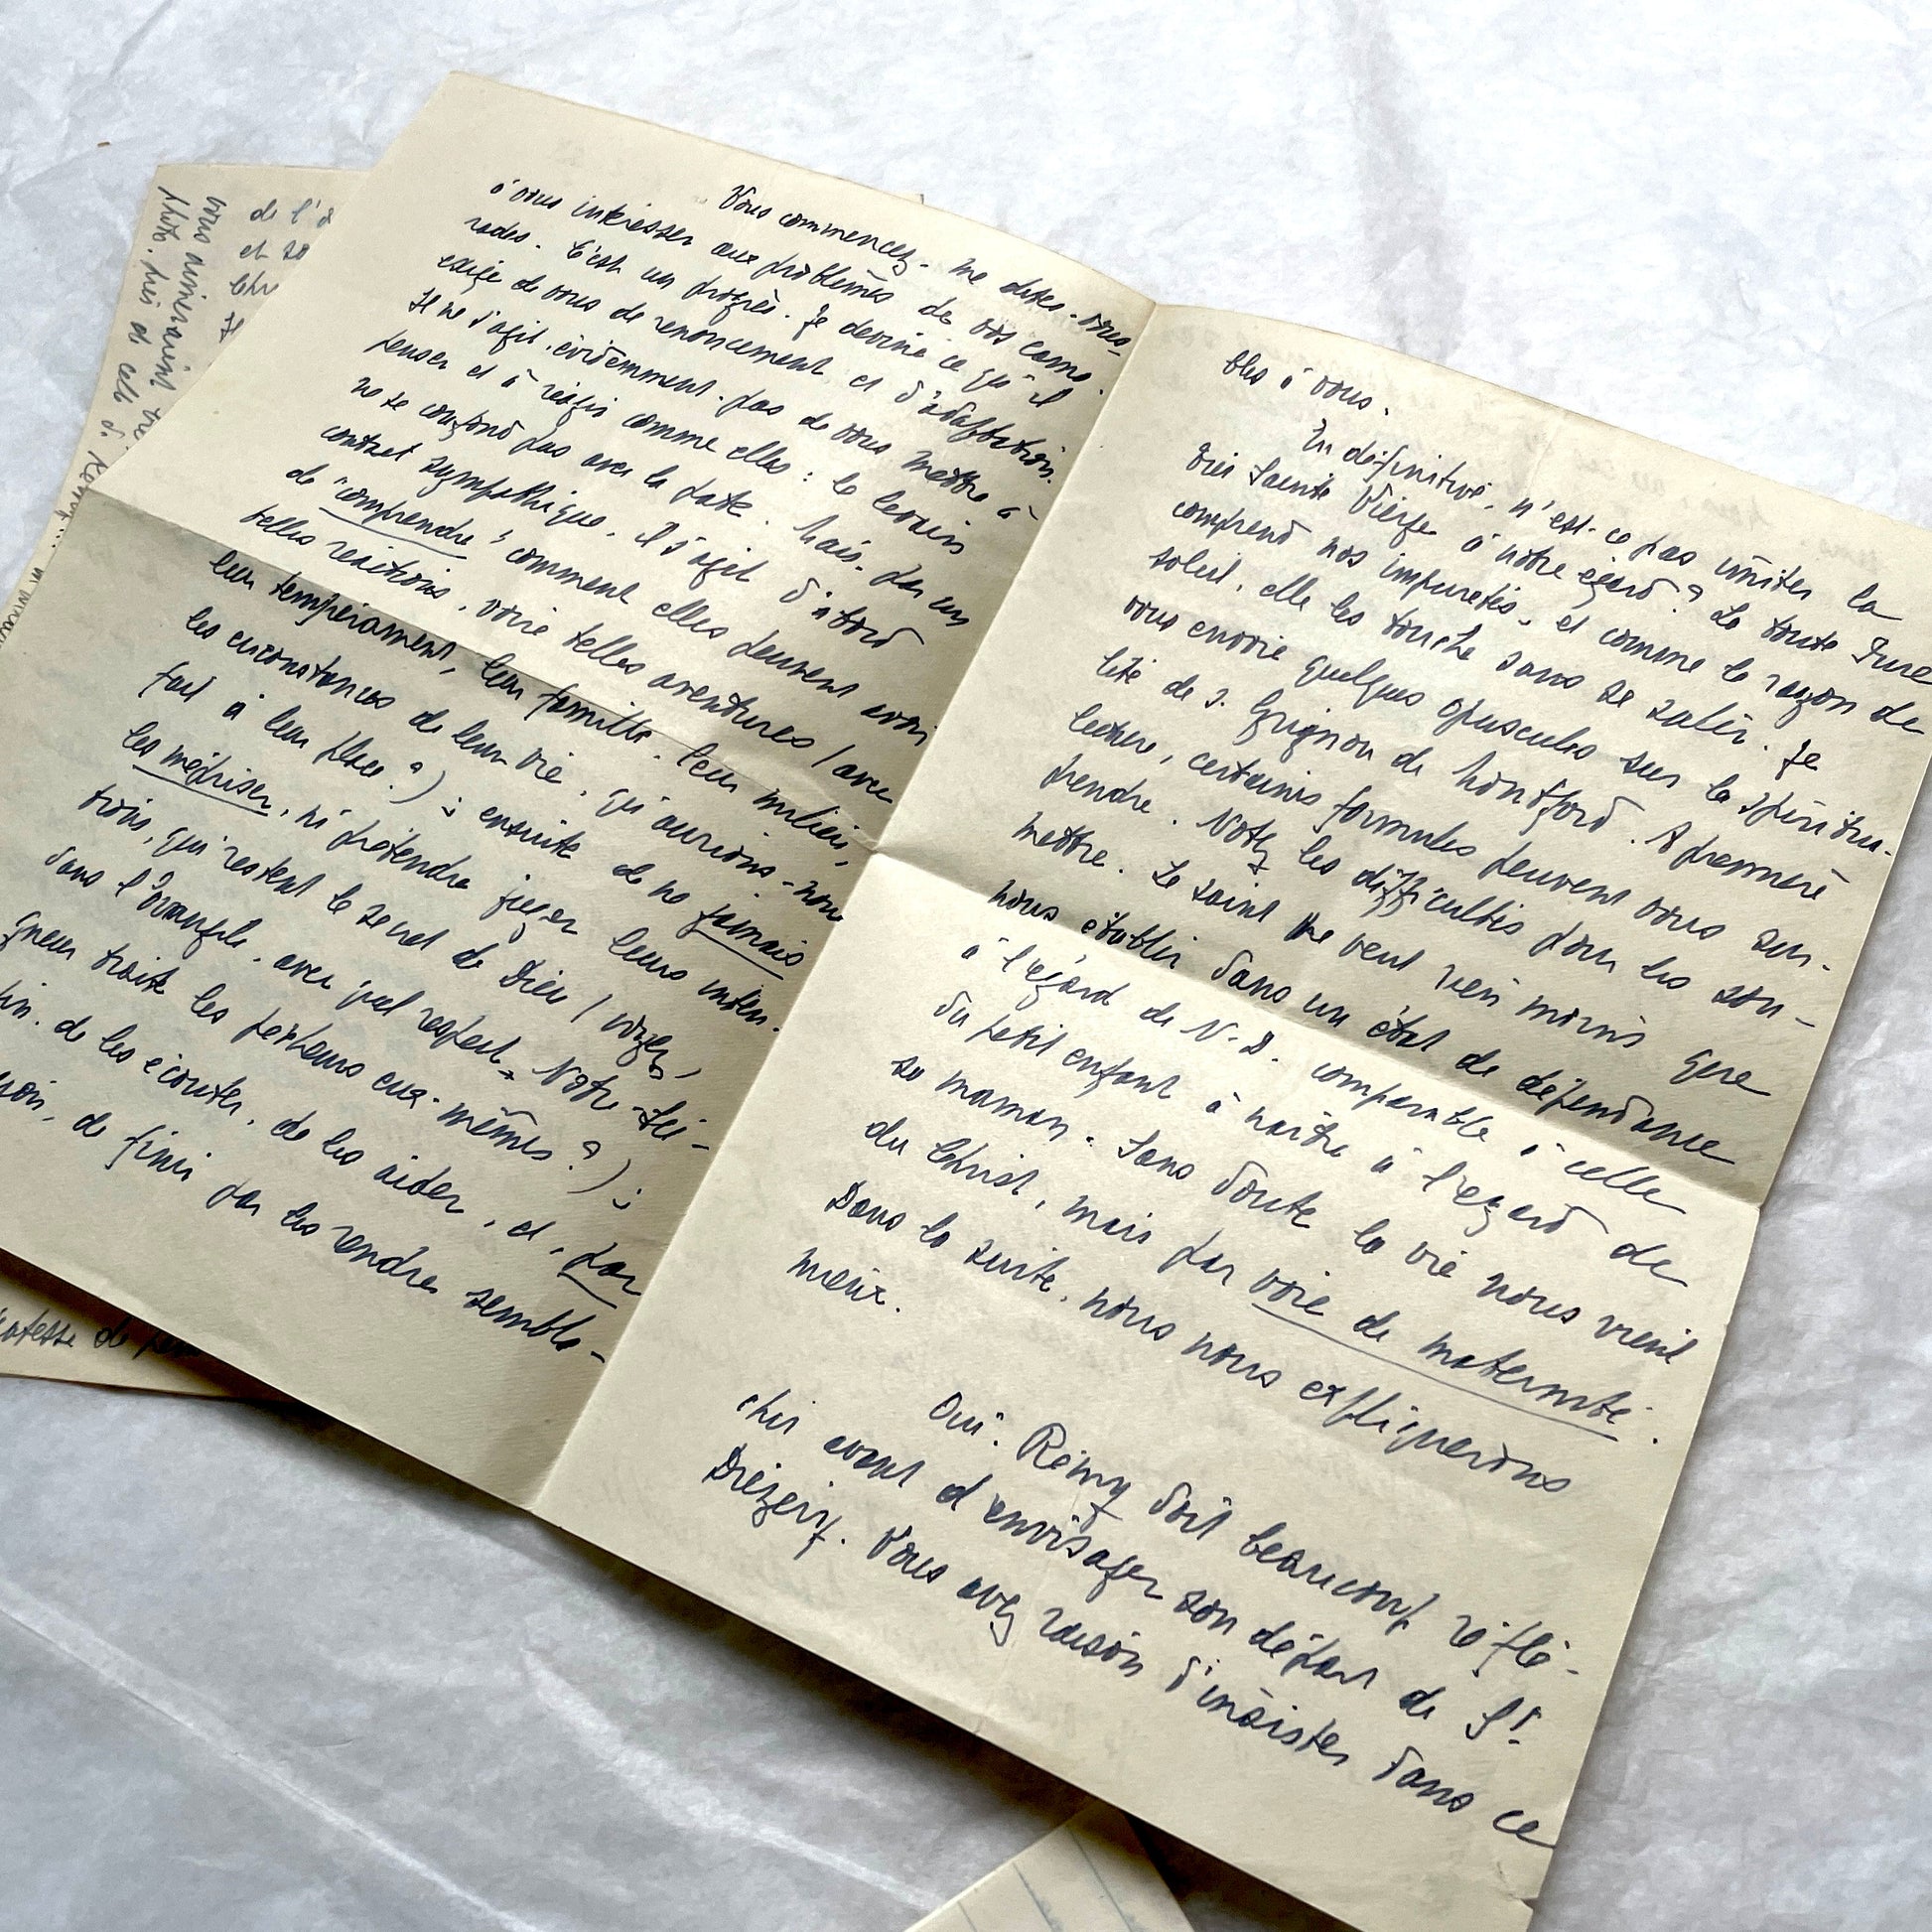 Vous commencez, me dites-vous,
à vous intéresser aux problèmes de vos cama-
rades. C'est un progrès. Je devine ce qu'il
exige de vous de renoncement et d'adaptation.
Il ne s'agit, évidemment, pas de vous mettre à
penser et à réagir comme elles : le levain
ne se confond pas avec la pâte. Mais, par un
contact sympathique, il s'agit d'abord
de "comprendre" comment elles peuvent avoir
telles réactions, voire telles aventures (avec
leur tempérament, leur famille, leur milieu,
les circonstances de leur vie, qu'aurions-nous
fait à leur place ?) ; ensuite de ne jamais
les mépriser, ni prétendre juger leurs inten-
tions, qui restent le secret de Dieu (voyez,
dans l'Évangile, avec quel respect Notre-Sei-
gneur traite les pécheurs eux-mêmes ?) ;
de les écouter, de les aider, et, par
de finir par les rendre sembla-
bles à vous.
En définitive, n'est-ce pas imiter la
Très Sainte Vierge à notre égard ? La toute Pure
comprend nos impuretés, et comme le rayon de
soleil, elle les touche sans se salir. Je
vous envoie quelques opuscules sur la spiritua-
lité de S. Grignon de Montfort. A première
lecture, certaines formules peuvent vous sur-
prendre. Notez les difficultés pour les sou-
mettre. Le saint ne veut rien moins que
nous établir dans un état de dépendance
à l'égard de N.D. comparable à celle
du petit enfant à naître à l'égard de
sa maman. Sans doute la vie nous vient
du Christ, mais par voie de maternité.
Dans la suite, nous nous expliquerons
mieux.
Oui. Rémy doit beaucoup réflé-
chir avant d'envisager son départ de St.
Diézeiry. Vous avez raison d'insister dans ce
de l'
et
vous aimeraient
de